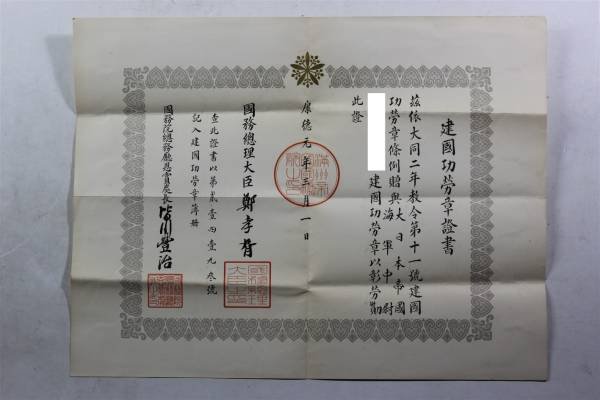 建國功勞章證書
茲依大同二年教令第十一號建國
功勞章條例贈與大日本帝國
海軍中尉
建國功勞章以彰勞勛
此證
康德元年三月一日
國務總理大臣 鄭孝胥
查此證書以第貳壹四壹九叁號
記入建國功勞章簿冊
國務院總務廳恩賞處長 豐治